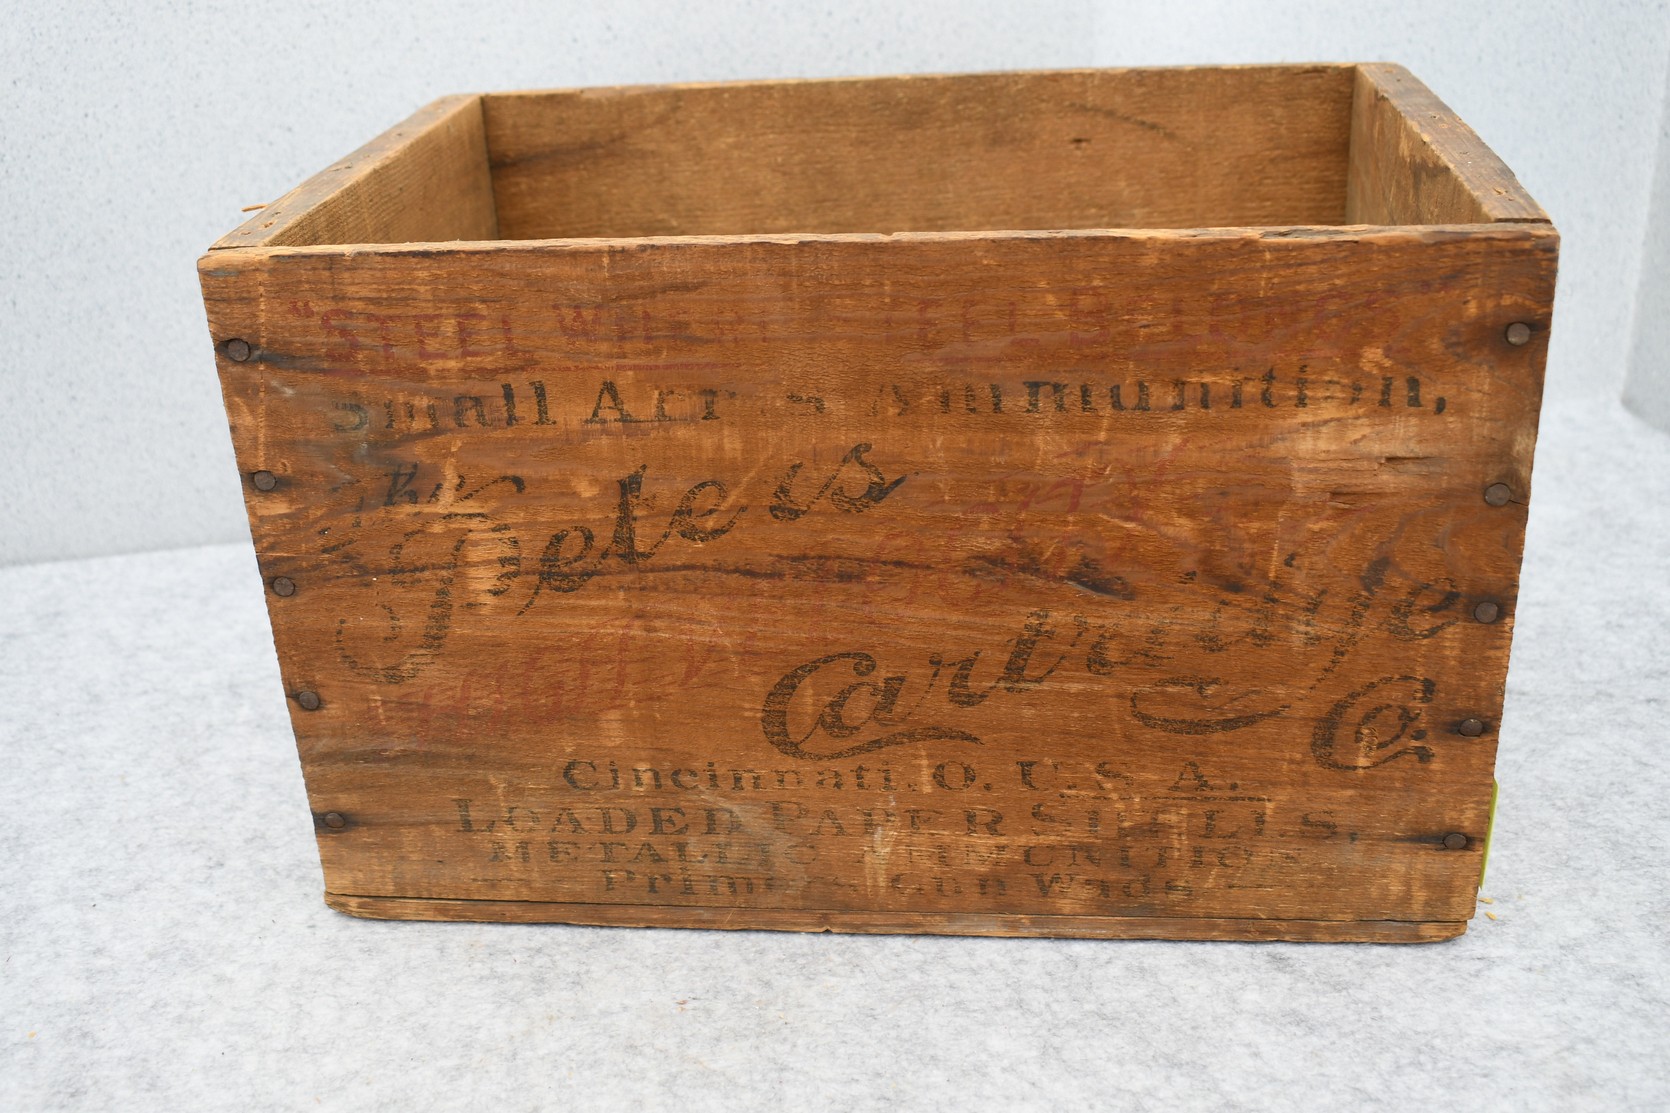 "STEEL WHERE STEEL BELONGS"
Small Arms Ammunition,
The
Peters
Cartridge Co.
Cincinnati. O. U.S.A.
LOADED PAPER SHELLS,
METALLIC AMMUNITION
Primers Gun Wads